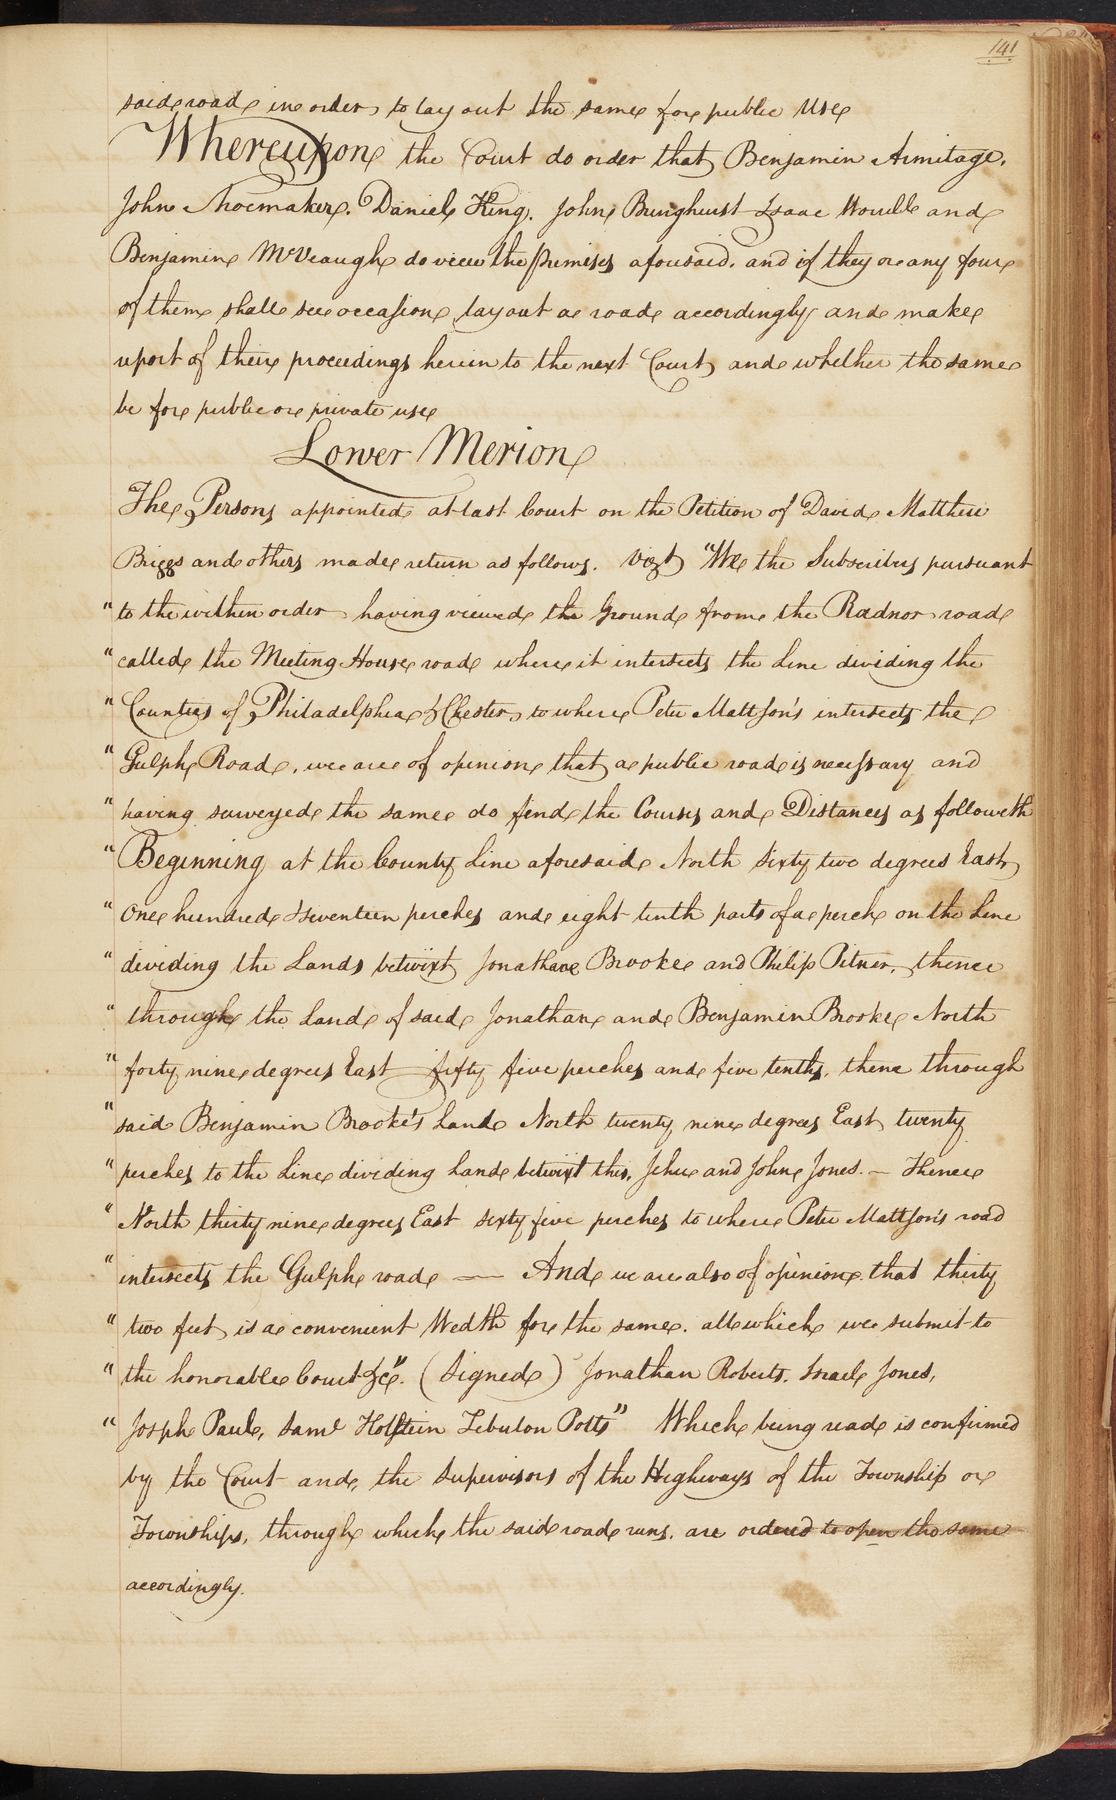 141
said road in order to lay out the same for public Use
Whereupon the Court do order that Benjamin Armitage,
John Shoemaker. Daniel King. John Burghurst Isaac Worrell and
Benjamin McVeaugh do view the premises aforesaid. and if they or any four
of them shall see occasion lay out a road accordingly and make
report of their proceedings herein to the next Court and whether the same
be for public or private use
Lower Merion
The Persons appointed at last Court on the Petition of David Matthew
Briggs and others made return as follows. Vizt "We the Subscribers pursuant
" to the within order having viewed the Ground from the Radnor road
" called the Meeting House road where it intersects the Line dividing the
" Counties of Philadelphia & Chester to where Peter Mattson's intersects the
" Gulph Road, we are of opinion that a public road is necessary and
" having surveyed the same do find the Courses and Distances as followeth
" Beginning at the County Line aforesaid North Sixty two degrees East
" One hundred & seventeen perches and eight tenth parts of a perch on the Line
" dividing the Lands betwixt Jonathan Brooke and Philip Pitner, thence
" through the Land of said Jonathan and Benjamin Brooke North
" forty nine degrees East fifty five perches and five tenths, thence through
" said Benjamin Brooke's Land North twenty nine degrees East twenty
" perches to the Line dividing Land betwixt this, Jehu and John Jones. — Thence
" North thirty nine degrees East sixty five perches to where Peter Mattson's road
" intersects the Gulph road — And we are also of opinion that thirty
" two feet is a convenient Wedth for the same. all which we submit to
" the honorable Court &c". (Signed) Jonathan Roberts. Israel Jones,
" Joseph Paul, Saml Holstein Zebulon Potts" Which being read is confirmed
by the Court and, the Supervisors of the Highways of the Township or
Townships, through which the said road runs. are ordered to open the same
accordingly.